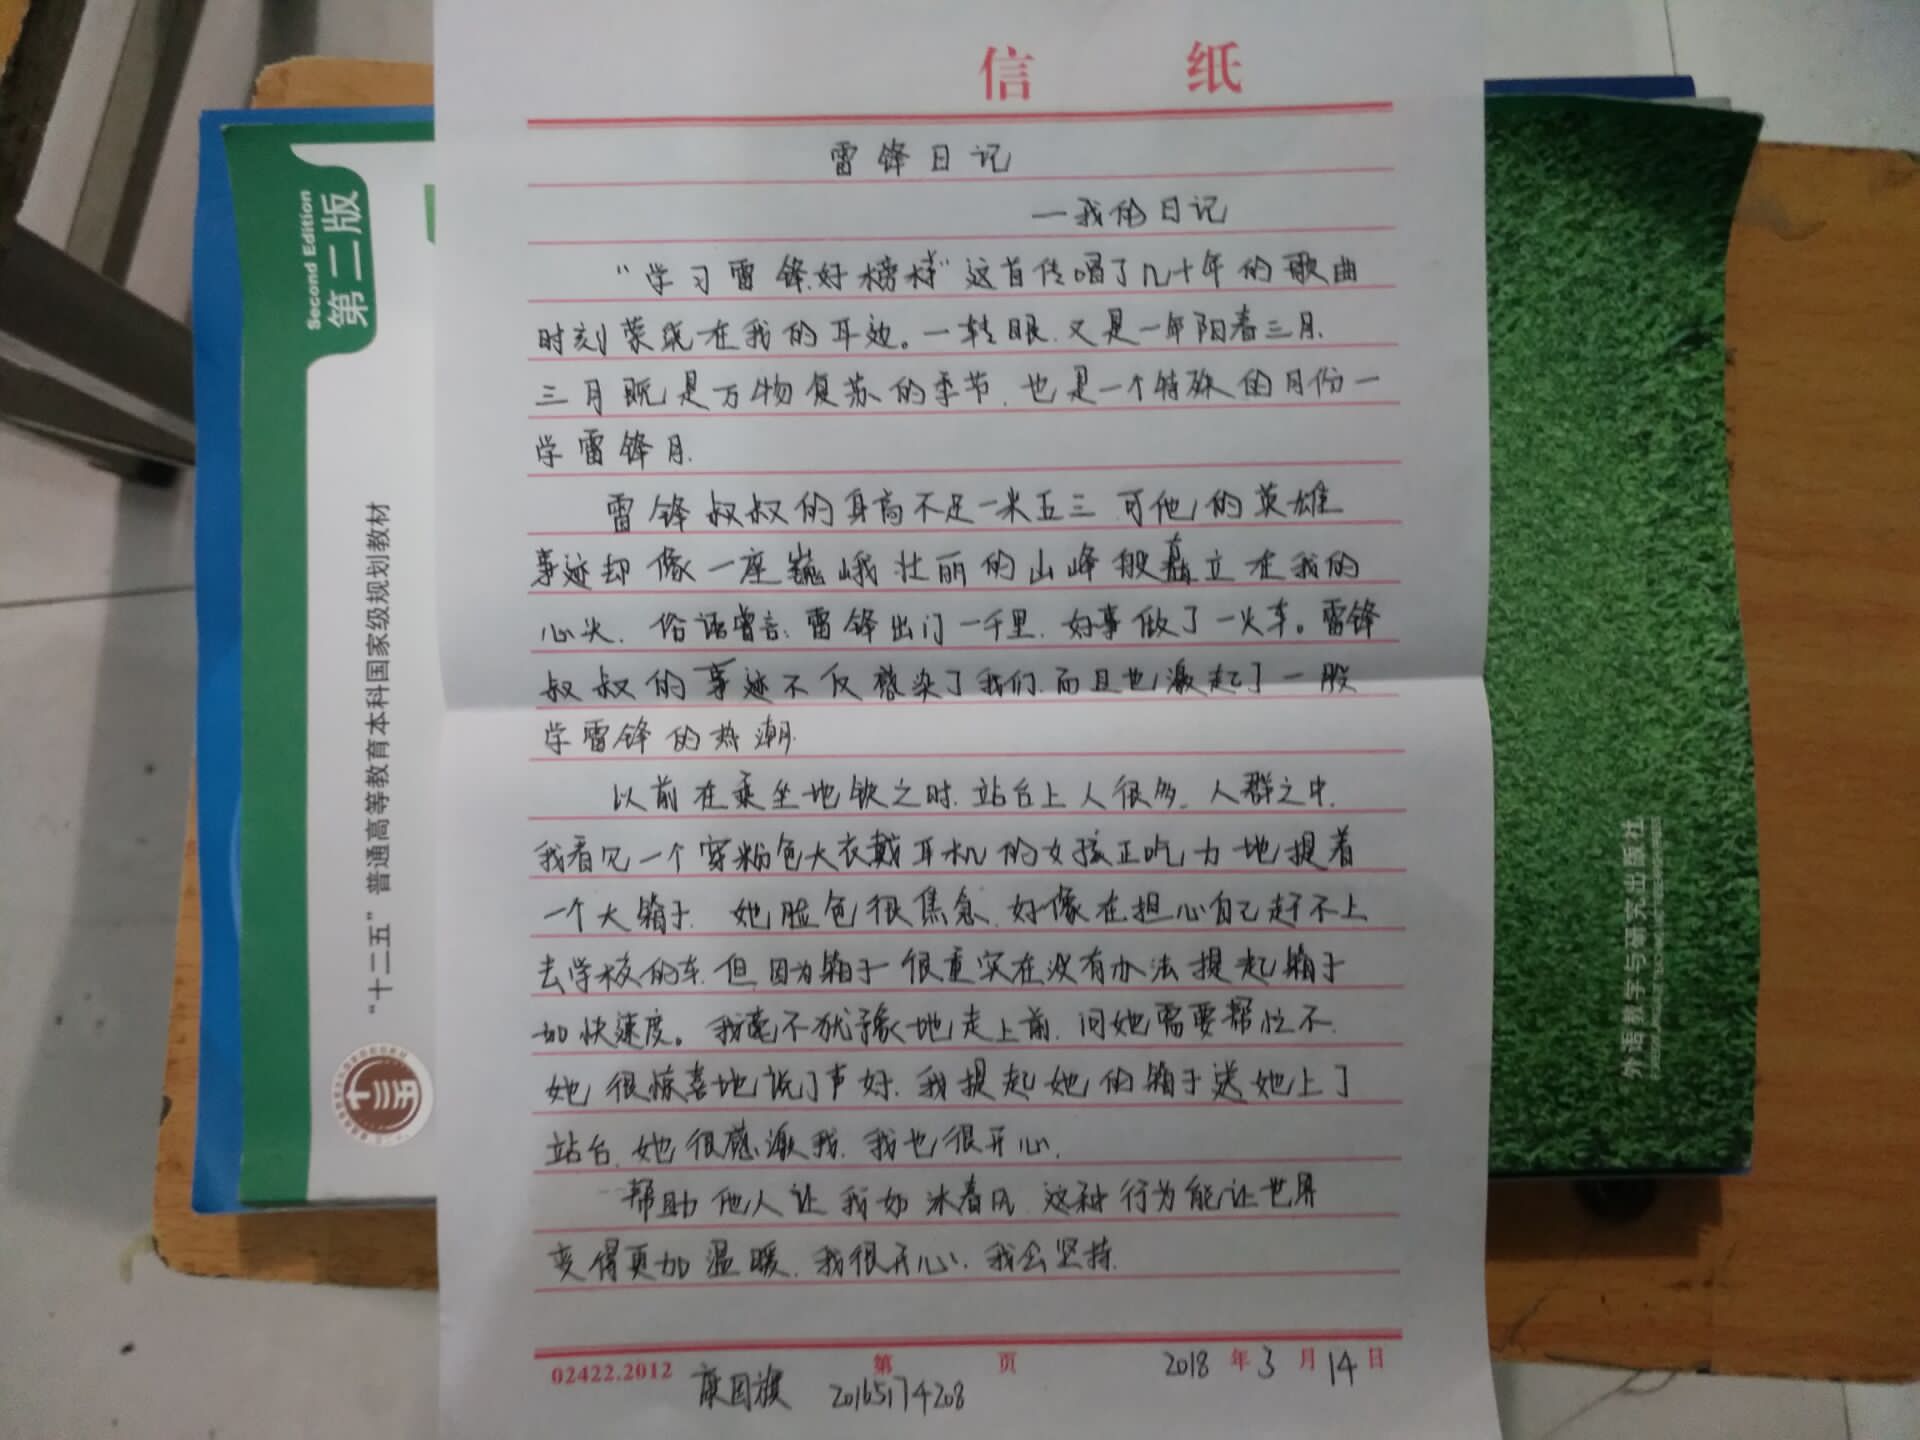 信 纸
雷锋日记
一我的日记
"学习雷锋好榜样"这首传唱了几十年的歌曲
时刻萦绕在我的耳边。一转眼,又是一年阳春三月.
三月既是万物复苏的季节,也是一个特殊的月份一
学雷锋月.
雷锋叔叔的身高不足一米五三,可他的英雄
事迹却像一座巍峨壮丽的山峰般矗立在我的
心头.俗话曾言:雷锋出门一千里,好事做了一火车。雷锋
叔叔的事迹不仅感染了我们,而且也激起了一股
学雷锋的热潮.
以前在乘坐地铁之时,站台上人很多,人群之中,
我看见一个穿粉色大衣戴耳机的女孩正吃力地提着
一个大箱子.她脸色很焦急,好像在担心自己赶不上
去学校的车,但因为箱子很重实在没有办法提起箱子
加快速度。我毫不犹豫地走上前,问她需要帮忙不.
她很惊喜地说了声好,我提起她的箱子送她上了
站台,她很感激我,我也很开心.
帮助他人让我如沐春风,这种行为能让世界
变得更加温暖,我很开心,我会坚持.
02422.2012 第 页 2018年3月14日
20165174208
Second Edition
第二版
"十二五"普通高等教育本科国家级规划教材
十二五
外语教学与研究出版社
FOREIGN LANGUAGE TEACHING AND RESEARCH PRESS